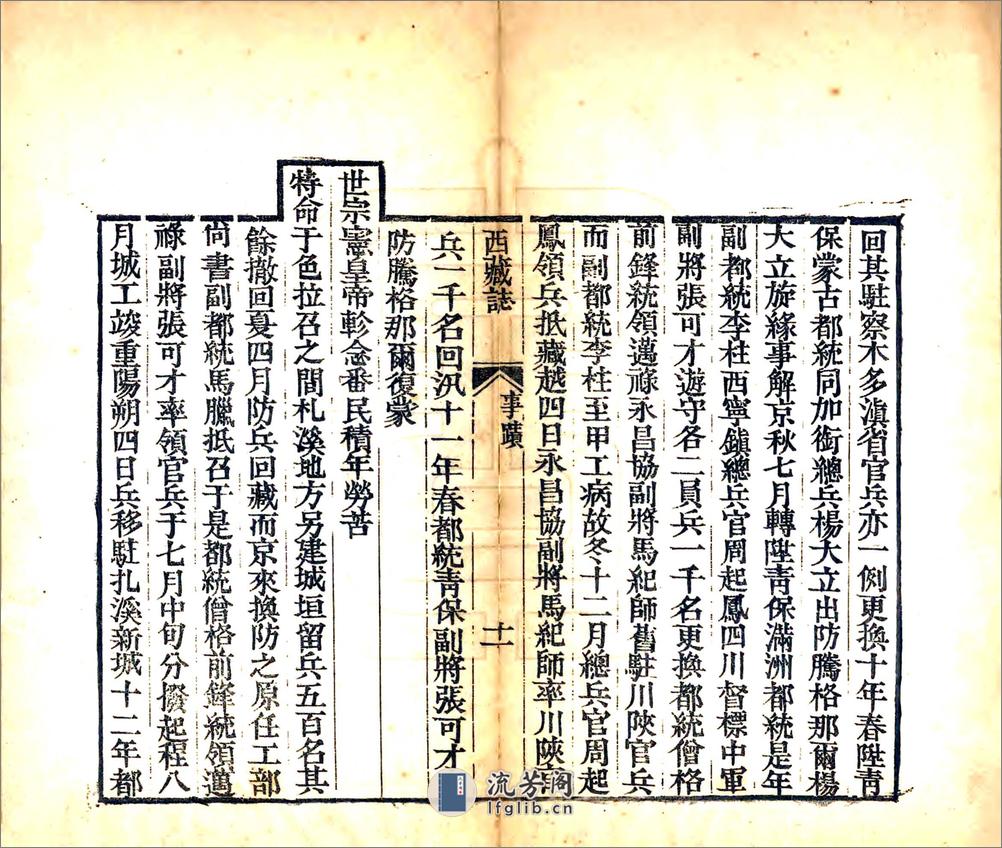 回其駐察木多滇省官兵亦一例更換十年春陞青
保蒙古都統同加銜總兵楊大立出防騰格那爾楊
大立旋緣事解京秋七月轉陞青保滿洲都統是年
副都統李柱西寧鎮總兵官周起鳳四川督標中軍
副將張可才遊守各二員兵一千名更換都統僧格
前鋒統領邁祿永昌協副將馬紀師舊駐川陝官兵
而副都統李柱至甲工病故冬十二月總兵官周起
鳳領兵抵藏越四日永昌協副將馬紀師率川陝
西藏誌 事蹟 十一
兵一千名回汛十一年春都統青保副將張可才
防騰格那爾復蒙
世宗憲皇帝軫念番民積年勞苦
特命于色拉召之間札溪地方另建城垣留兵五百名其
餘撤回夏四月防兵回藏而京來換防之原任工部
尙書副都統馬臘抵召于是都統僧格前鋒統領邁
祿副將張可才率領官兵于七月中旬分撥起程八
月城工竣重陽朔四日兵移駐扎溪新城十二年都
流芳閣
lfglib.cn